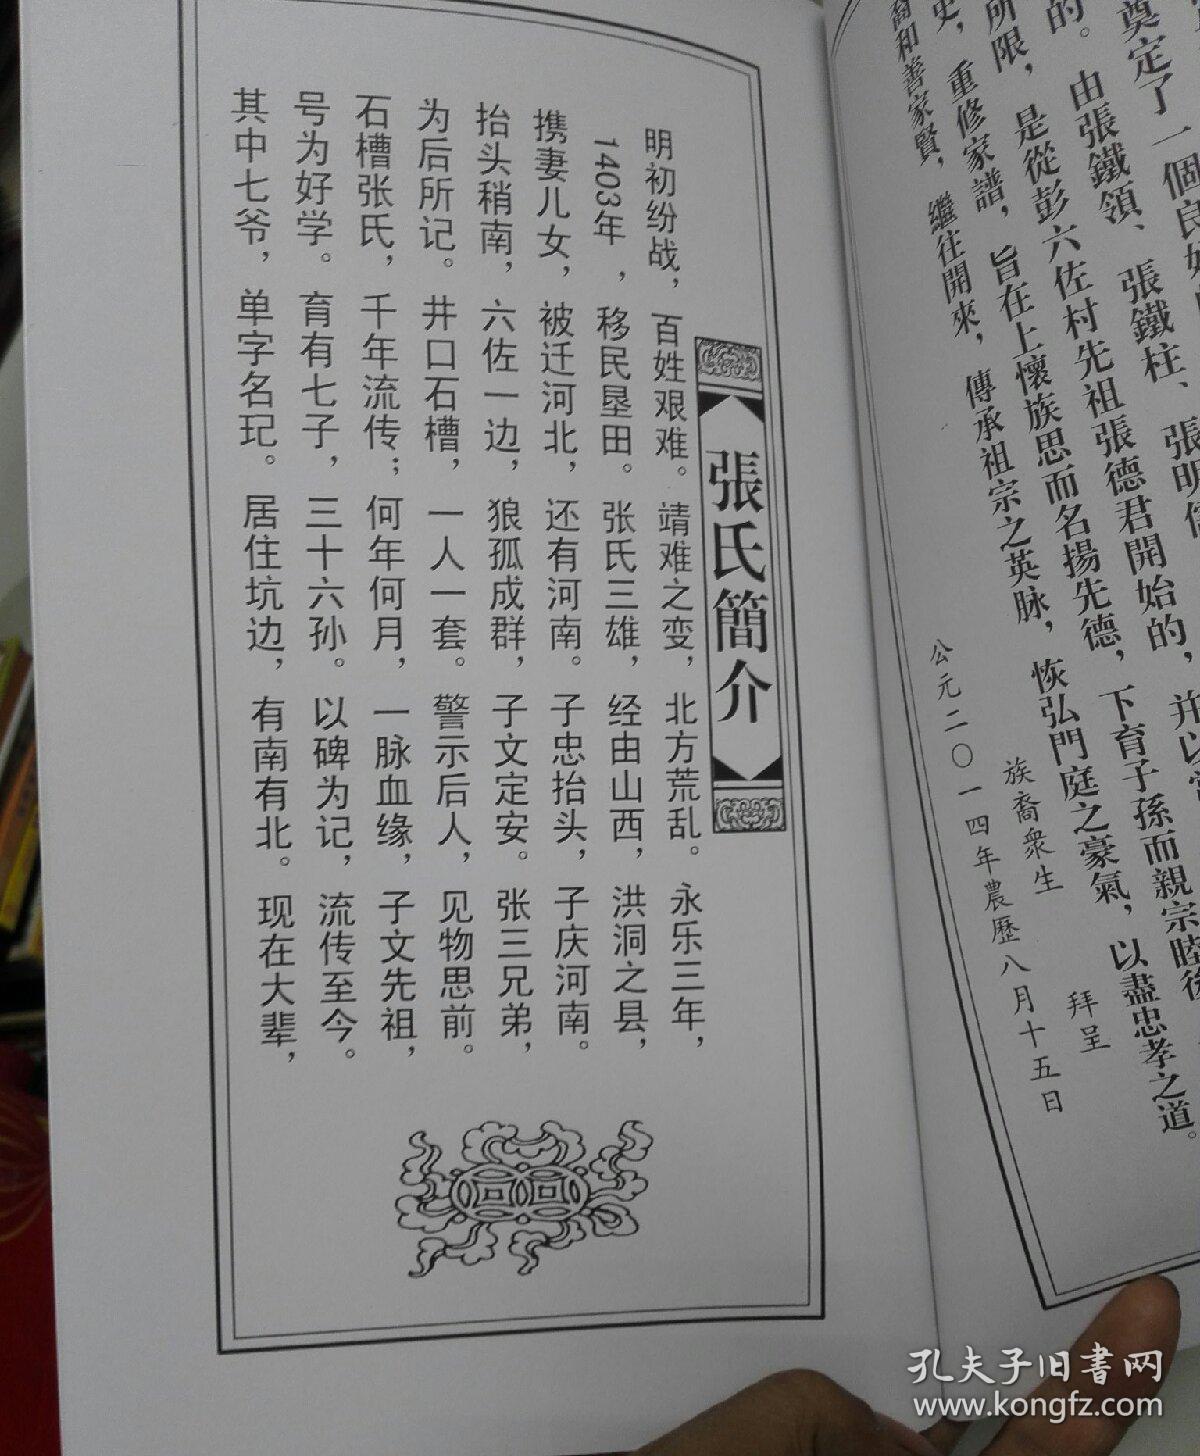 奠定了一個良好
的。由張鐵領、張鐵柱、張明
所限，是從彭六佐村先祖張德君開始的，并以
史，重修家譜，旨在上懷族思而名揚先德，下育子孫而親宗睦
裔和善家賢，繼往開來，傳承祖宗之英脉，恢弘門庭之豪氣，以盡忠孝之道。
族裔衆生 拜呈
公元二〇一四年農歷八月十五日
張氏簡介
明初纷战，百姓艰难。靖难之变，北方荒乱。永乐三年，
1403年，移民垦田。张氏三雄，经由山西，洪洞之县，
携妻儿女，被迁河北，还有河南。子忠抬头，子庆河南。
抬头稍南，六佐一边，狼孤成群，子文定安。张三兄弟，
为后所记。井口石槽，一人一套。警示后人，见物思前。
石槽张氏，千年流传；何年何月，一脉血缘，子文先祖，
号为好学。育有七子，三十六孙。以碑为记，流传至今。
其中七爷，单字名玘。居住坑边，有南有北。现在大辈，
孔夫子旧書网
www.kongfz.com